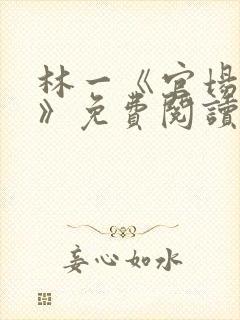 林一《官场
》免費閱讀
妄心如水